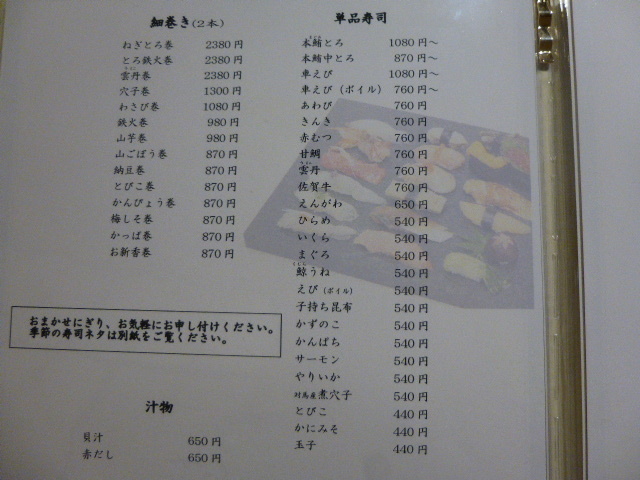 細巻き(2本)
ねぎとろ巻 2380円
とろ鉄火巻 2380円
雲丹巻 2380円
穴子巻 1300円
わさび巻 1080円
鉄火巻 980円
山芋巻 980円
山ごぼう巻 870円
納豆巻 870円
とびこ巻 870円
かんぴょう巻 870円
梅しそ巻 870円
かっぱ巻 870円
お新香巻 870円
おまかせにぎり、お気軽にお申し付けください。
季節の寿司ネタは別紙をご覧ください。
汁物
貝汁 650円
赤だし 650円
単品寿司
本鮪とろ 1080円~
本鮪中とろ 870円~
車えび 1080円~
車えび(ボイル) 760円~
あわび 760円
きんき 760円
赤むつ 760円
甘鯛 760円
雲丹 760円
佐賀牛 760円
えんがわ 650円
ひらめ 540円
いくら 540円
まぐろ 540円
鯨うね 540円
えび(ボイル) 540円
子持ち昆布 540円
かずのこ 540円
かんぱち 540円
サーモン 540円
やりいか 540円
対馬産煮穴子 540円
とびこ 440円
かにみそ 440円
玉子 440円